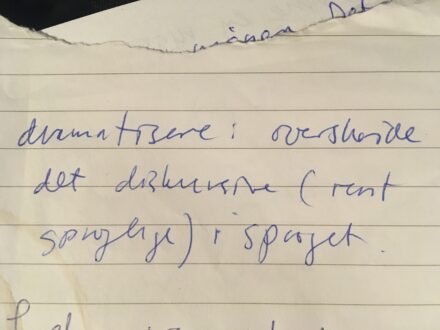 dramatisere: overskride
det diskursive (rent
sproglige) i sproget.